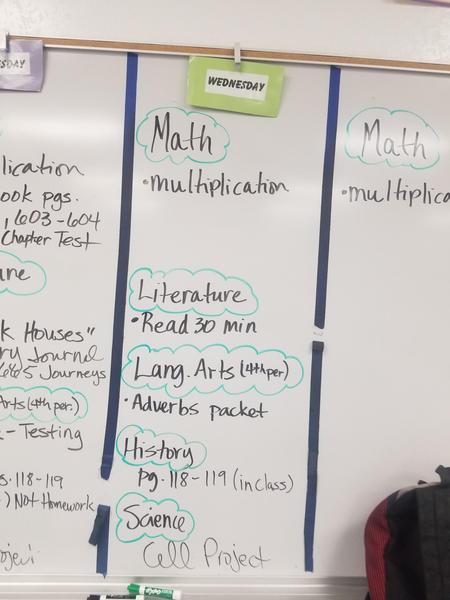 SDAY
lication
ook pgs.
, 603-604
Chapter Test
k Houses"
ry Journal
665 Journeys
Arts (4th per.)
- Testing
s. 118-119
) Not Homework
WEDNESDAY
Math
• multiplication
Literature
• Read 30 min
Lang. Arts (4th per)
• Adverbs packet
History
pg. 118-119 (in class)
Science
Cell Project
Math
• multiplica
EXPO